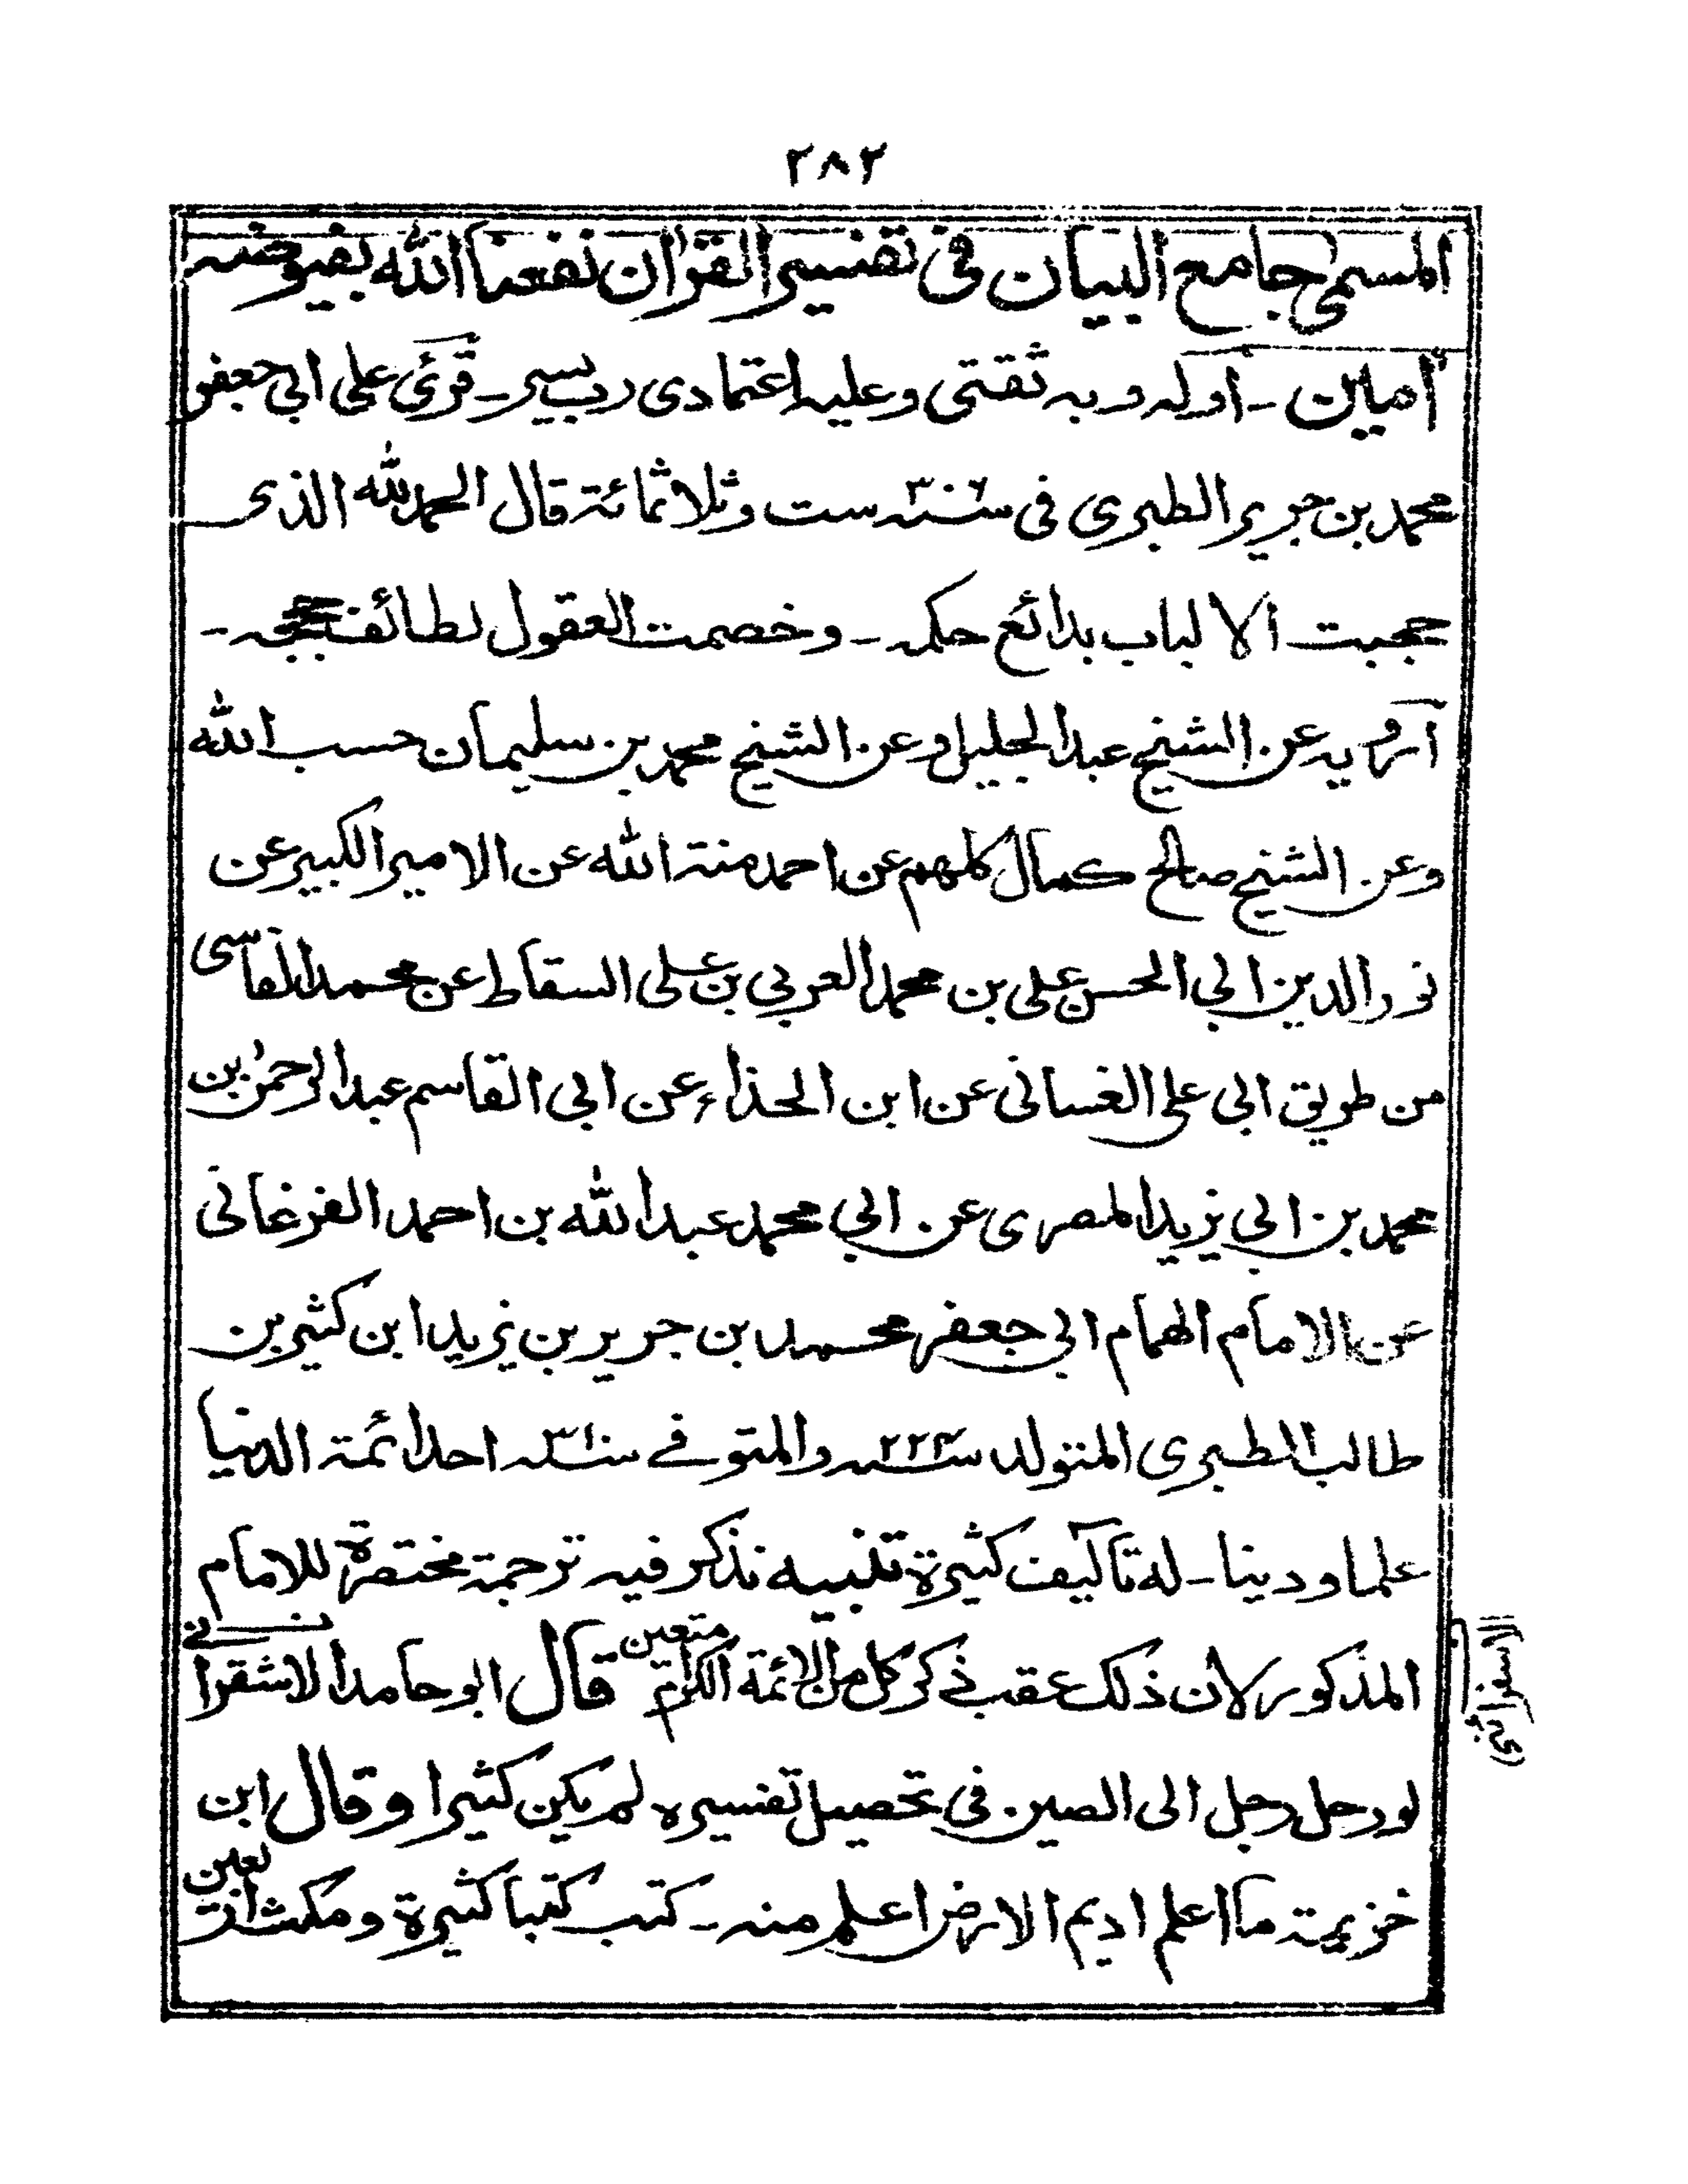 ٢٨٢
المسمى جامع البيان فى تفسير القرآن نفعنا الله بفيوضه
آمين - أوله وبه ثقتى وعليه اعتمادى رب يسر - قرئ على ابى جعفر
محمد بن جرير الطبرى فى سنة ٣٠٦ ست وثلاثمائة قال الحمد لله الذى
حجبت الالباب بدائع حكمه - وخصمت العقول لطائف حججه -
أرويه عن الشيخ عبد الجليل وعن الشيخ محمد بن سليمان حسب الله
وعن الشيخ صالح كمال كلهم عن احمد منة الله عن الامير الكبير عن
نور الدين ابي الحسن على بن محمد العربي بن على السقاط عن محمد الفاسى
من طريق ابى على الغسانى عن ابن الحذاء عن ابي القاسم عبد الرحمن بن
محمد بن ابي يزيد المصرى عن ابي محمد عبد الله بن احمد الفرغانى
عن الامام الهمام ابى جعفر محمد بن جرير بن يزيد ابن كثير بن
طالب الطبرى المتولد سنة ٢٢٤ والمتوفے سنة ٣١٠ احد ائمة الدنيا
علما ودينا - له تآليف كثيرة تنبيه نذكر فيه ترجمة مختصرة للامام
المذكور لان ذلك عقب ذكر كل من الائمة الكرام متعين قال ابو حامد الاسفرائنے
لو رحل رجل الى الصين فى تحصيل تفسيره لم يكن كثيرا وقال ابن
خزيمة ما اعلم اديم الارض اعلم منه - كتب كتبا كثيرة ومكث اربعين